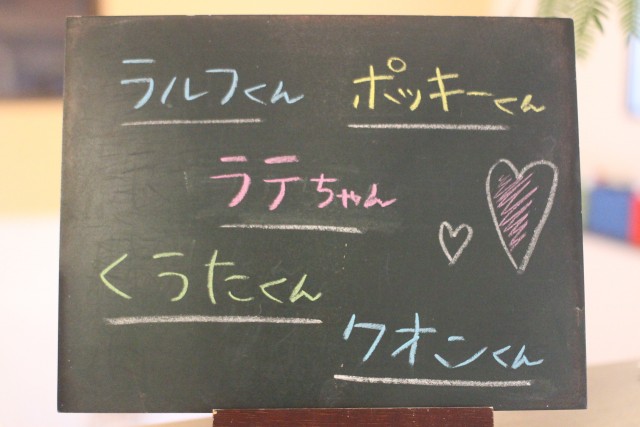 ラルフくん
ポッキーくん
ラテちゃん
くうたくん
クオンくん